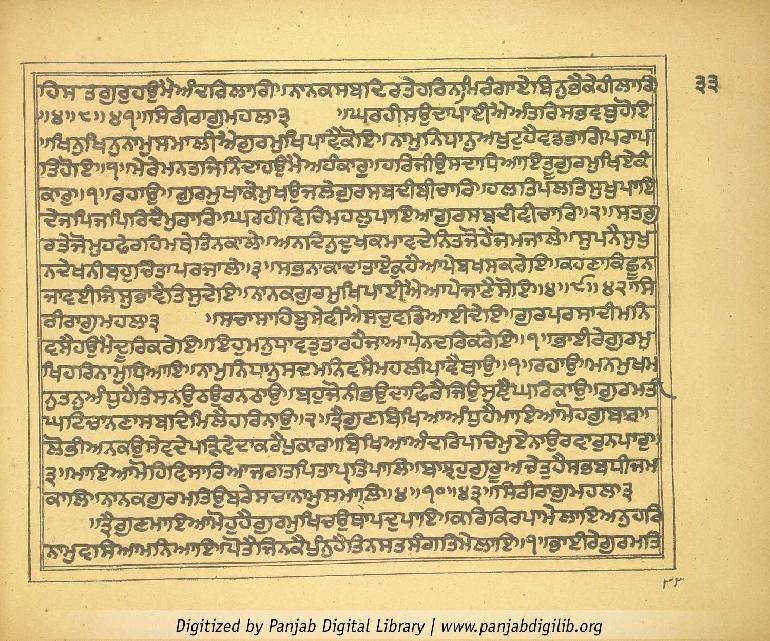 ਹਿਸਤਗੁਰੁਹਉਮੈਅੰਦਰਿਲਾਗਿ॥ਨਾਨਕਸਬਦਿਰਤੇਹਰਿਨਾਮਿਰੰਗਾਏਬਿਨੁਭੈਕੇਹੀਲਾਗਿ
੩੩
॥੪॥੮॥੪੧॥ਸਿਰੀਰਾਗੁਮਹਲਾ੩ ॥ਘਰਹੀਸਉਦਾਪਾਈਐਅੰਤਰਿਸਭਵਥੁਹੋਇ
॥ਖਿਨੁਖਿਨੁਨਾਮੁਸਮਾਲੀਐਗੁਰਮੁਖਿਪਾਵੈਕੋਇ॥ਨਾਮੁਨਿਧਾਨੁਅਖੁਟੁਹੈਵਡਭਾਗਿਪਰਾਪ
ਤਿਹੋਇ॥੧॥ਮੇਰੇਮਨਤਜਿਨਿੰਦਾਹਉਮੈਅਹੰਕਾਰੁ॥ਹਰਿਜੀਉਸਦਾਧਿਆਇਤੂਗੁਰਮੁਖਿਏਕੰ
ਕਾਰੁ॥੧॥ਰਹਾਉ॥ਗੁਰਮੁਖਾਕੇਮੁਖਉਜਲੇਗੁਰਸਬਦੀਬੀਚਾਰਿ॥ਹਲਤਿਪਲਤਿਸੁਖੁਪਾਇ
ਦੇਜਪਿਜਪਿਰਿਦੈਮੁਰਾਰਿ॥ਘਰਹੀਵਿਚਿਮਹਲੁਪਾਇਆਗੁਰਸਬਦੀਵੀਚਾਰਿ॥੨॥ਸਤਗੁ
ਰਤੇਜੋਮੁਹਫੇਰਹਿਮਥੇਤਿਨਕਾਲੇ॥ਅਨਦਿਨੁਦੁਖਕਮਾਵਦੇਨਿਤਜੋਹੇਜਮਜਾਲੇ॥ਸੁਪਨੈਸੁਖੁ
ਨਦੇਖਨੀਬਹੁਚਿੰਤਾਪਰਜਾਲੇ॥੩॥ਸਭਨਾਕਾਦਾਤਾਏਕੁਹੈਆਪੇਬਖਸਕਰੇਇ॥ਕਹਣਾਕਿਛੂਨ
ਜਾਵਈਜਿਸੁਭਾਵੈਤਿਸੁਦੇਇ॥ਨਾਨਕਗੁਰਮੁਖਿਪਾਈਐਆਪੇਜਾਣੈਸੋਇ॥੪॥੯॥੪੨॥ਸਿ
ਰੀਰਾਗੁਮਹਲਾ੩ ॥ਸਚਾਸਾਹਿਬੁਸੇਵੀਐਸਚੁਵਡਿਆਈਦੇਇ॥ਗੁਰਪਰਸਾਦੀਮਨਿ
ਵਸੈਹਉਮੈਦੂਰਿਕਰੇਇ॥ਇਹੁਮਨੁਧਾਵਤੁਤਾਰਹੈਜਾਆਪੇਨਦਰਿਕਰੇਇ॥੧॥ਭਾਈਰੇਗੁਰਮੁ
ਖਿਹਰਿਨਾਮੁਧਿਆਇ॥ਨਾਮੁਨਿਧਾਨੁਸਦਮਨਿਵਸੈਮਹਲੀਪਾਵੈਥਾਉ॥੧॥ਰਹਾਉ॥ਮਨਮੁਖਮ
ਨੁਤਨੁਅੰਧੁਹੈਤਿਸਨਉਠਉਰਨਠਾਉ॥ਬਹੁਜੋਨੀਭਉਦਾਫਿਰੈਜਿਉਸੁੰਞੈਘਰਿਕਾਉ॥ਗੁਰਮਤੀ
ਘਟਿਚਾਨਣਾਸਬਦਿਮਿਲੈਹਰਿਨਾਉ॥੨॥ਤ੍ਰੈਗੁਣਬਿਖਿਆਅੰਧੁਹੈਮਾਇਆਮੋਹਗੁਬਾਰ॥
ਲੋਭੀਅਨਕਉਸੇਵਦੇਪੜਿਵੇਦਾਕਰੈਪੁਕਾਰ॥ਬਿਖਿਆਅੰਦਰਿਪਚਿਮੁਏਨਾਉਰਵਾਰੁਨਪਾਰੁ॥
੩॥ਮਾਇਆਮੋਹਿਵਿਸਾਰਿਆਜਗਤਪਿਤਾਪ੍ਰਤਿਪਾਲਿ॥ਬਾਝਹੁਗੁਰੂਅਚੇਤੁਹੈਸਭਬਧੀਜਮ
ਕਾਲਿ॥ਨਾਨਕਗੁਰਮਤਿਉਬਰੇਸਚਾਨਾਮੁਸਮਾਲਿ॥੪॥੧੦॥੪੩॥ਸਿਰੀਰਾਗੁਮਹਲਾ੩
॥ਤ੍ਰੈਗੁਣਮਾਇਆਮੋਹੁਹੈਗੁਰਮੁਖਿਚਉਥਾਪਦੁਪਾਇ॥ਕਰਿਕਿਰਪਾਮੇਲਾਇਅਨੁਹਰਿ
ਨਾਮੁਵਸਿਆਮਨਿਆਇ॥ਪੋਤੈਜਿਨਕੈਪੁੰਨੁਹੈਤਿਨਸਤਸੰਗਤਿਮੇਲਾਇ॥੧॥ਭਾਈਰੇਗੁਰਮਤਿ
Digitized by Panjab Digital Library | www.panjabdigilib.org